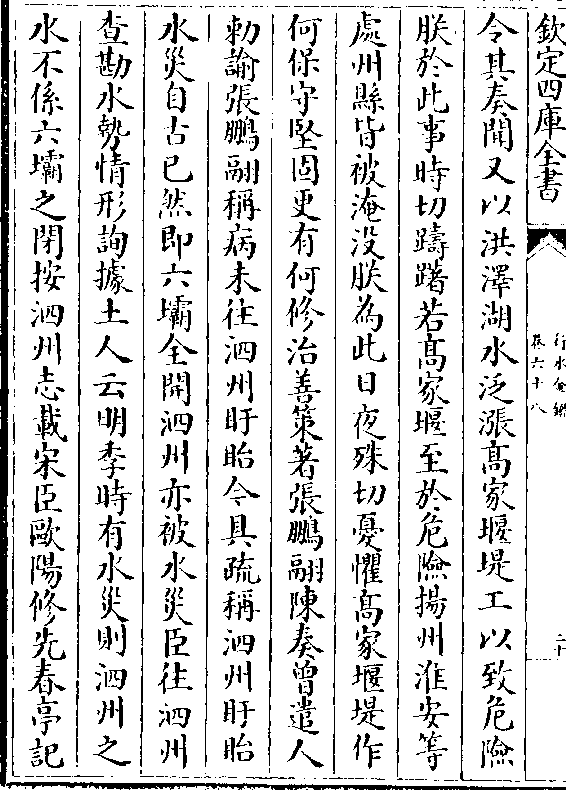 欽定四庫全書
行水金鑑
卷六十八
二十
令其奏聞又以洪澤湖水泛漲髙家堰堤工以致危險
朕於此事時切躊躇若髙家堰至於危險揚州淮安等
處州縣皆被淹没朕為此日夜殊切憂懼髙家堰堤作
何保守堅固更有何修治善策著張鵬翮陳奏曾遣人
勅諭張鵬翮稱病未往泗州盱眙今具疏稱泗州盱眙
水災自古已然即六壩全開泗州亦被水災臣往泗州
查勘水勢情形詢據土人云明季時有水災則泗州之
水不係六壩之閉按泗州志載宋臣歐陽修先春亭記